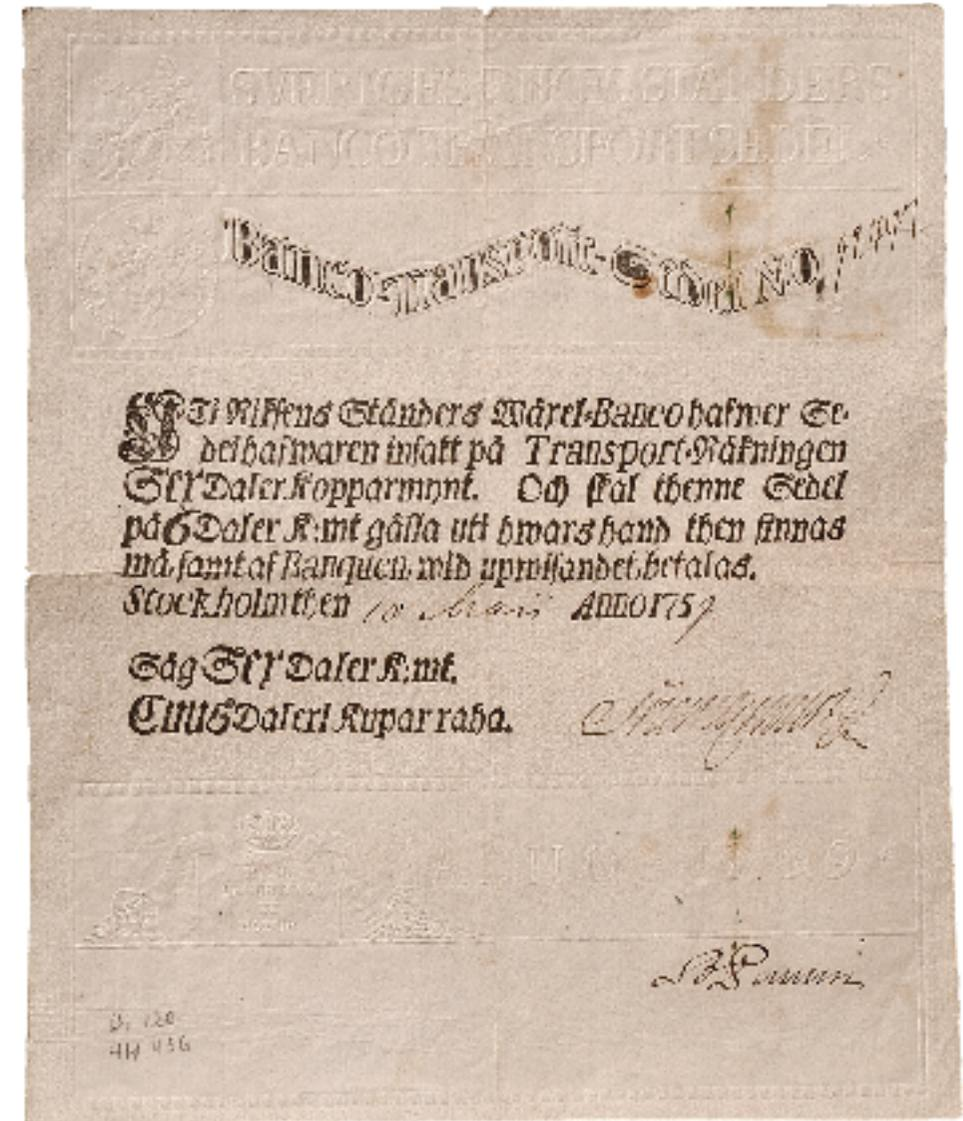 SVERIGES RIKES STÄNDERS
BANCO TRANSPORT SEDEL
Banco-Transport-Sedel No,
UTi Riksens Ständers Wäxel-Banco hafwer Se-
delhafwaren insatt på Transport-Räkningen
SEX Daler Kopparmynt. Och skal thenne Sedel
på 6 Daler K:mt gälla uti hwars hand then finnas
må, samt af Banquen, wid upwisandet, betalas.
Stockholm then 10 Martii ANNO 1759
Säg SEX Daler K:mt.
CUUS Daleri Kupar raha.